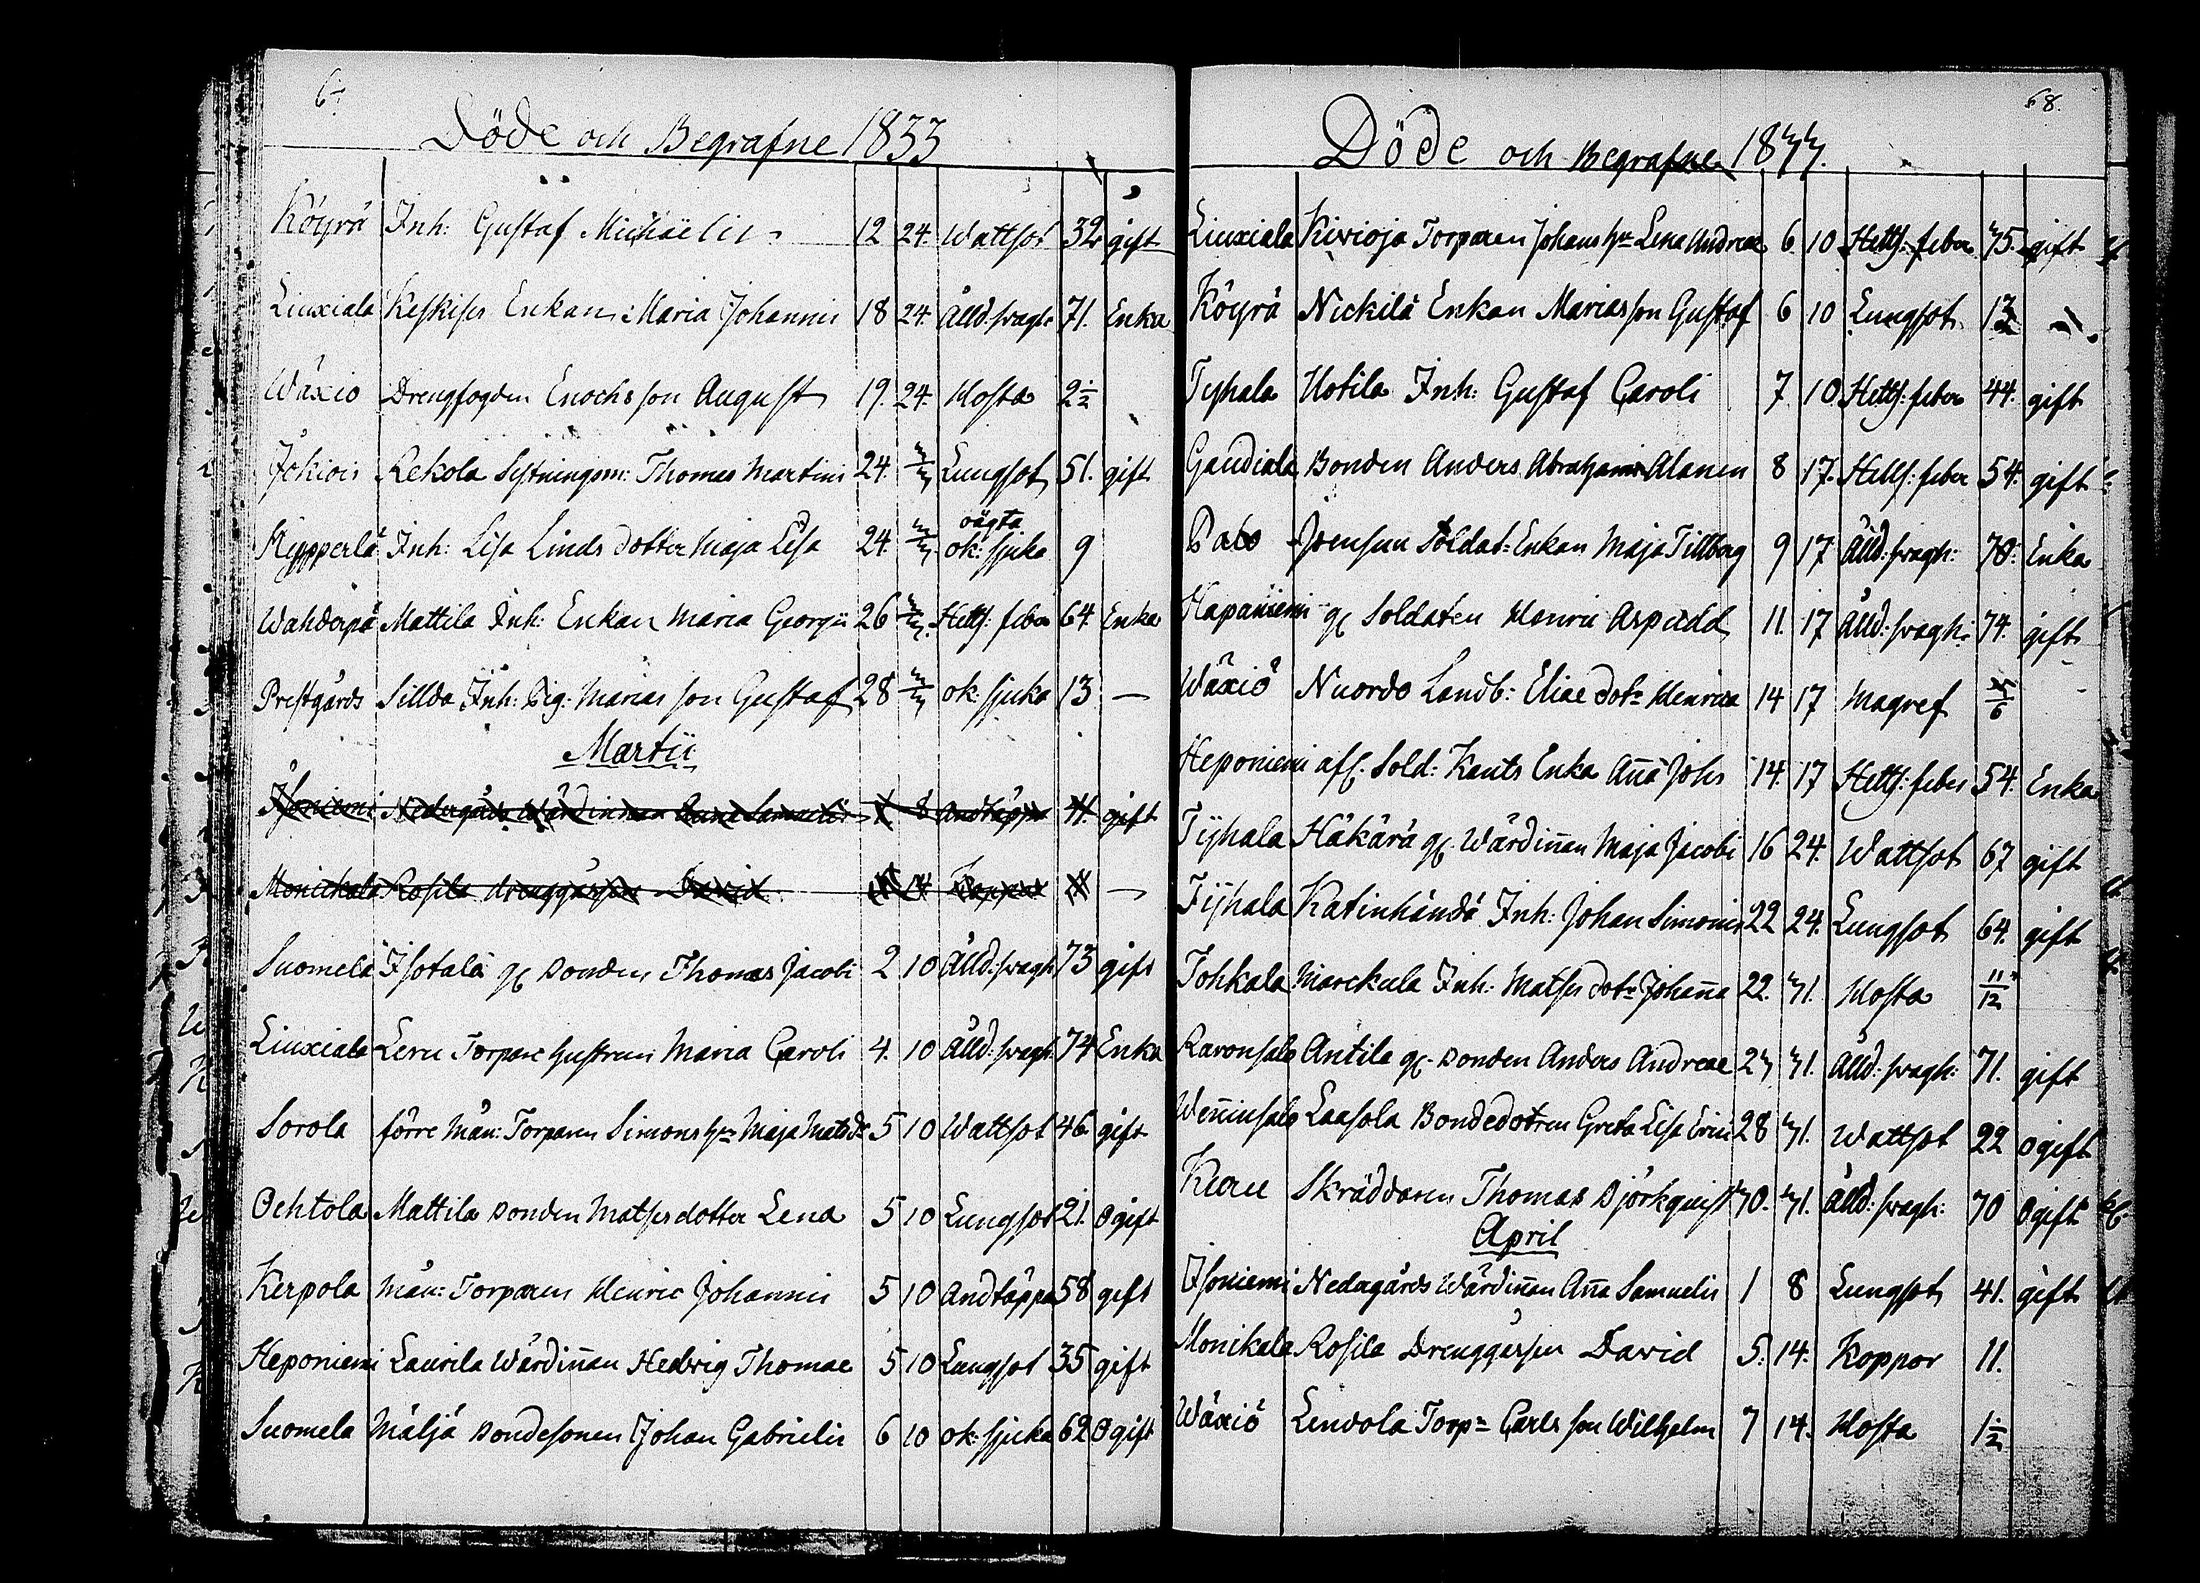 Döde och Begrafne 1833
Köyrä Inh: Gustaf Michaëlis 12 24. Wattsot 32 gift
Liuxiala Keskises Enkan Maria Johannis 18 24. Ålld: swagh: 71. Enka
Wäxiö Drengfogden Enochs son August 19. 24. Hosta 2 1/2
Jokiois Rekola Sytningsm: Thomas Martini 24. 3/3 Lungsot 51. gift
oägta
Kyypperlä Inh: Lisa Linds dotter Maja Lisa 24. 3/3 ok: sjuka 9
Wahderpä Mattila Inh: Enkan Maria Georgii 26 3/3. Hetts: feber 64. Enka
Prestgårds Sillda Inh: Pig: Marias son Gustaf 28 3/3 ok: sjuka 13 —
Martii
Isoniemi Nedergårds Wärdinnan Anna Samuelis 1 8 Andtäppa 41. gift
Monickala Rosila drenggåssen David Koppor 11 —
Suomela Isotalä gl Bonden Thomas Jacobi 2 10 Ålld: swagh 73 gift
Liuxiala Leru Torpare hustrun Maria Caroli 4. 10 Ålld: swagh: 74 Enka
Sorola förre Mån: Torparen Simons hu Maja Matsdr 5 10 Wattsot 46. gift
Ochtola Mattila Bonden Matses dotter Lena 5 10 Lungsot 21. Ogift
Kerpola Mån: Torparen Henric Johannis 5 10 Andtäppa 58 gift
Heponiemi Laurila Wärdiñan Hedvig Thomae 5 10 Lungsot 35 gift
Suomela Mäljä Bondesonen Johan Gabrielis 6 10 ok: sjuka 62 Ogift
68.
Döde och Begrafne 1833.
Liuxiala Kivioja Torparen Johans hu Lena Andreae 6 10 Hetts: feber 75. gift
Köyrä Nickilä Enkan Marias son Gustaf 6 10 Lungsot 13
Tyhala Uotila Inh: Gustaf Caroli 7 10 Hetts: feber 44. gift
Gaudiala Bonden Anders Abrahamss Alanen 8 17. Hetts: feber 54. gift
Palo Joensuu Soldat: Enkan Maja Tillberg 9 17 Ålld: swagh: 78. Enka
Hapaniemi gl Soldaten Henric Aspudd 11. 17 Ålld: swagh: 74. gift
Wäxiö Nuordo Landb: Eliae dotr Henrica 14 17 Magref 5/6
Heponiemi afl. Sold: Kants Enka Aña Johs 14. 17 Hetts: feber 54. Enka
Tyhala Häkärä gl. Wärdiñan Maja Jacobi 16 24. Wattsot 67 gift
Tyhala Katinhändä Inh: Johan Simonis 22 24. Lungsot 64. gift
Tohkala Marckula Inh: Matses dotr Johaña 22. 31. Hosta 11/12
Ravonsalo Antila gl. Bonden Anders Andreae 23 31. Ålld: swagh: 71. gift
Weñinsalo Laasola Bondedotren Greta Lisa Erici 28 31. Wattsot 22 ogift
Kieru Skräddaren Thomas Björkquist 30. 31. Ålld: swagh: 70 Ogift
April
Isoniemi Nedagårds Wärdiñan Aña Samuelis 1 8 Lungsot 41. gift
Monikala Rosila Drenggåssen David 5. 14. Koppor 11.
Wäxiö Lendola Torpn Carls son Wilhelm 7 14. Hosta 1 1/2